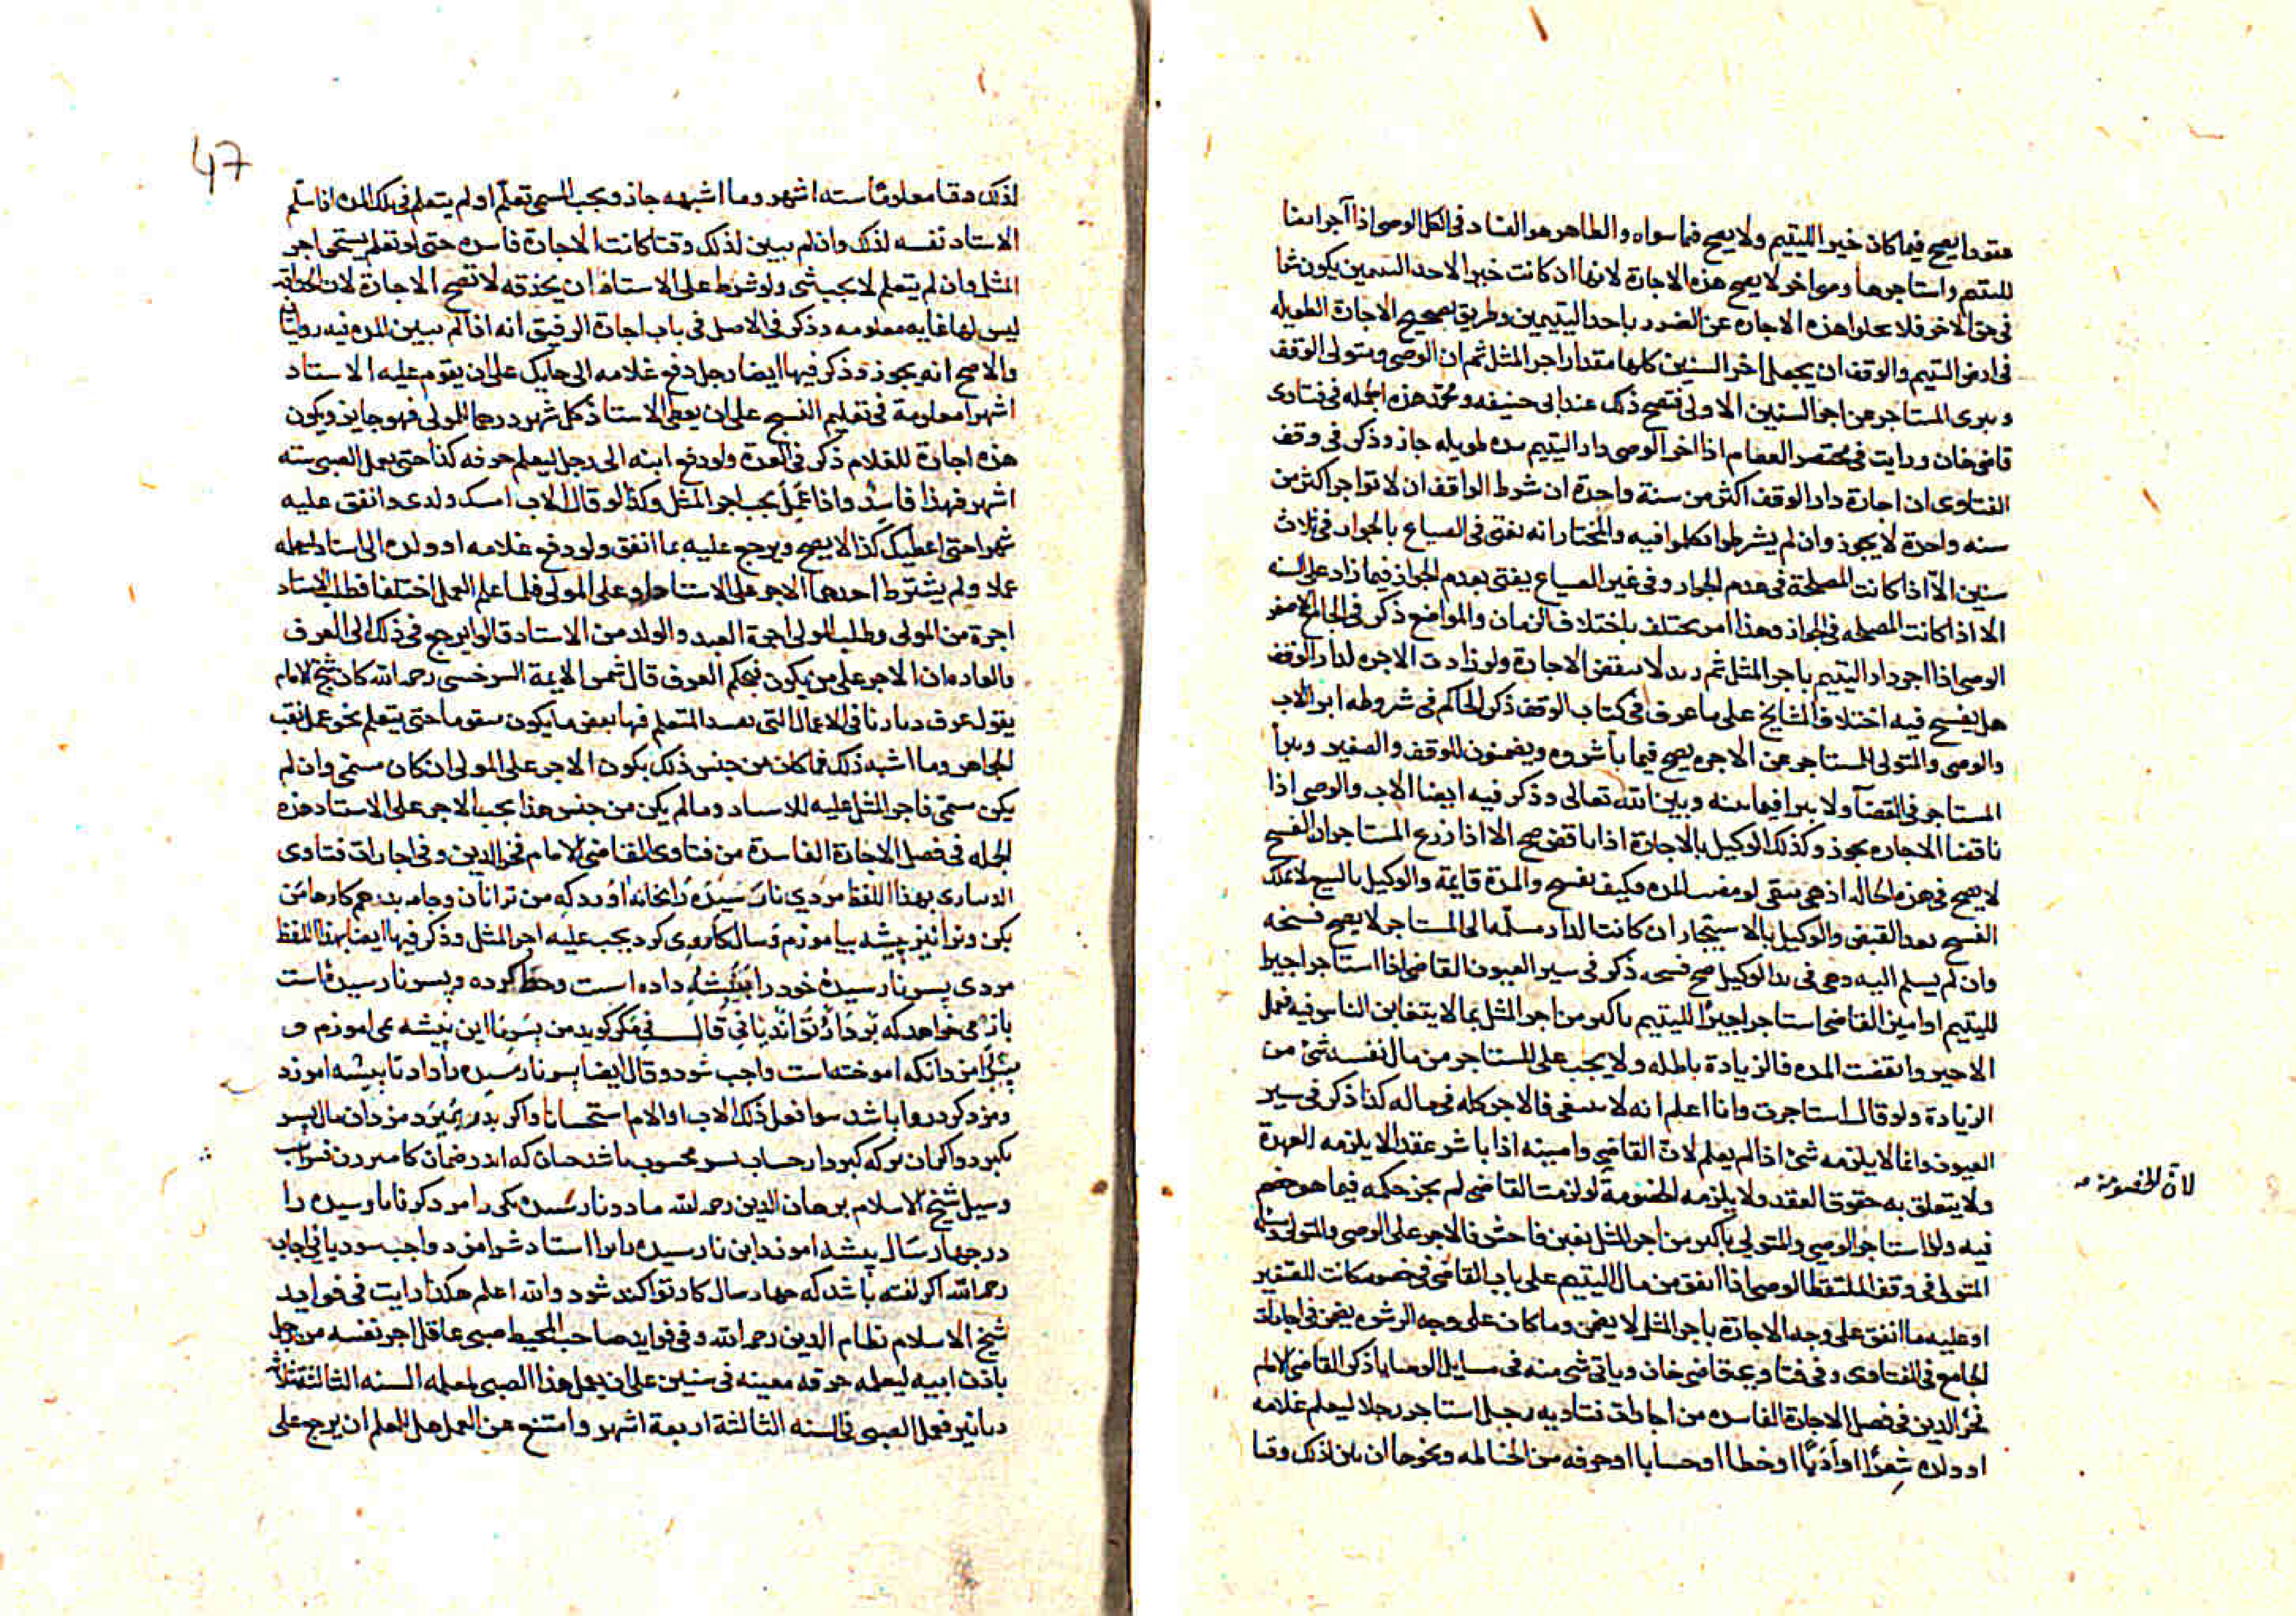 عقودا يصح فيما كان خيرا لليتيم ولا يصح فيما سواه والظاهر هو الفساد في الكل الوصي اذا آجر ارضا
لليتيم واستاجرها وصي اخر لا يصح هذه الاجارة لانها ان كانت خيرا لاحد اليتيمين يكون شرا
في حق الاخر فلا يخلوا هذه الاجاره عن الضرر باحد اليتيمين وطريق تصحيح الاجارة الطويله
في ارض اليتيم والوقف ان يجعل اخر السنين كلها مقدار اجر المثل ثم ان الوصي ومتولى الوقف
ويبرى المستاجر عن اجر السنين الاولى فتصح ذلك عند ابى حنيفه ومحمد هذه الجمله في فتاوى
قاضي خان ورايت في مختصر العصام اذا اخر الوصي دار اليتيم مده طويله جاز وذكر في وقف
الفتاوى ان اجارة دار الوقف اكثر من سنة واحدة ان شرط الواقف ان لا تواجر اكثر من
سنه واحدة لا يجوز وان لم يشرطوا تكلموا فيه والمختار انه نفتى في الضياع بالجواز في ثلاث
سنين الا اذا كانت المصلحة في عدم الجواز وفي غير الضياع يفتى بعدم الجواز فيما زاد على السنه
الا اذا كانت المصلحه في الجواز وهذا امر يختلف باختلاف الزمان والمواضع ذكر في الجامع الاصغر
الوصي اذا اجر دار اليتيم باجر المثل ثم زيد لا ينقض الاجارة ولو زادت الاجره لدار الوقف
هل يفسخ فيه اختلاف المشايخ على ما عرف في كتاب الوقف ذكر الحاكم في شروطه ابرا الاب
والوصي والمتولى المستاجر عن الاجره يصح فيما باشروه ويضمنون للوقف والصغير ويبرأ
المستاجر في القضآ ولا يبرا فيما بينه وبين الله تعالى وذكر فيه ايضا الاب والوصي اذا
ناقضا الاجاره يجوز وكذلك الوكيل بالاجارة اذا ناقض صح الا اذا زرع المستاجر اذ الفسخ
لا يصح في هذه الحاله اذ هي تبقى لو مضت المده فكيف نفسخ والمدة قايمة والوكيل بالبيع لا يملك
الفسخ بعد القبض والوكيل بالاستيجار ان كانت الدار مسلمه الى المستاجر لا يصح فسخه
وان لم يسلم اليه وهي في يد الوكيل صح فسخه ذكر في سير العيون القاضي اذا استاجر اجيرا
لليتيم او امين القاضي استاجر اجيرا لليتيم باكثر من اجر المثل بما لا يتغابن الناس فيه فعمل
الاجير وانقضت المده فالزيادة باطله ولا يجب على المستاجر من مال نفسه شئ من
الزيادة ولو قال استاجرت وانا اعلم انه لا ينبغي فالاجر كله في ماله كذا ذكر في سير
العيون وانما لا يلزمه شئ اذا لم يعلم لان القاضي وامينه اذا باشر عقدا لا يلزمه العهدة
ولا يتعلق به حقوق العقد ولا يلزمه الخصومة لو لزمت القاضي لم يجز حكمه فيما هو خصم
لان الخصومة صح
فيه ولو استاجر الوصي والمتولي باكثر من اجر المثل بغبن فاحش فالاجر على الوصي والمتولي
المتولى في وقف الملتقط الوصي اذا انفق من مال اليتيم على باب القاضي في خصومه كانت للصغير
او عليه ما انفق على وجه الاجارة باجر المثل لا يضمن وما كان على وجه الرشوه يضمن في اجارات
الجامع في الفتاوى وفي فتاوى قاضي خان وياتي شئ منه في مسايل الوصايا ذكر القاضي الامام
فخر الدين في فصل الاجارة الفاسده من اجارات فتاويه رجل استاجر رجلا ليعلم غلامه
او ولده شعرا او ادبا او خطا او حسابا او حرفه من الخياطه ونحوها ان بين لذلك وقتا
47
لذلك وقتا معلوما سته اشهر وما اشبهه جاز ويجب المسمى تعلم او لم يتعلم في تلك المده اذا سلم
الاستاد نفسه لذلك وان لم يبين لذلك وقتا كانت الاجارة فاسده حتى لو تعلم يستحق اجر
المثل وان لم يتعلم لا يجب شئ ولو شرط على الاستاذ ان يحذقه لا تصح الاجارة لان الحذاقه
ليس لها غايه معلومه وذكر في الاصل في باب اجارة الرقيق انه اذا لم يبين المده فيه روايتان
والاصح انه يجوز وذكر فيها ايضا رجل دفع غلامه الى حايك على ان يقوم عليه الاستاد
اشهرا معلومة في تعليم النسج على ان يعطى الاستاذ كل شهر درهما للمولى فهو جايز ويكون
هذه اجارة للغلام ذكر في العدة ولو دفع ابنه الى رجل ليعلم حرفه كذا حتى يعمل الصبي سته
اشهر فهذا فاسد واذا عمل يجب اجر المثل وكذا لو قال الاب امسك ولدى وانفق عليه
شهرا حتى اعطيك كذا لا يصح ويرجع عليه بما انفق ولو دفع غلامه او ولده الى استاد ليعلمه
عملا ولم يشترط احدهما الاجر على الاستاد او على المولى فلما علم العمل اختلفا فطلب الاستاد
اجرة من المولى وطلب المولى اجرة العبد والولد من الاستاد قالوا يرجع في ذلك الى العرف
والعاده ان الاجر على من يكون فيحكم العرف قال شمس الايمة السرخسى رحمه الله كان شيخ الامام
يقول عرف ديارنا في الاعمال التى يفسد المتعلم فيها بعض ما يكون متقوما حتى يتعلم نحو عمل ثقب
الجواهر وما اشبه ذلك فما كان من جنس ذلك يكون الاجر على المولى ان كان مسمى وان لم
يكن مسمى فاجر المثل عليه للاستاد وما لم يكن من جنس هذا يجب الاجر على الاستاد هذه
الجمله في فصل الاجارة الفاسدة من فتاوى القاضي الامام فخر الدين وفي اجارات فتاوى
الديناري بهذا اللفظ مردي نارسيده را بخانه اورد كه من ترا نان وجامه بدهم كارها من
بكن وترا نيز پيشه بياموزم وسال كاروى كرد يجب عليه اجر المثل وذكر فيها ايضا بهذا اللفظ
مردى پسر نارسيدۀ خود را بپيشه داده است وخط كرده وپسر نارسيده است
باز مى خواهد كه برد تواند يا ني قال ني مكر كويد من پسر ما اين پيشه مى اموزم و
بيش از انكه اموخته است واجب شود وقال ايضا پسر نارسيده را داد تا پيشه اموزد
ومزد كرد روا باشد سوا فعل ذلك الاب او الام استحسانا واكر پدر بميرد مزد ان مال پسر
وسيل شيخ الاسلام برهان الدين رحمه الله مادر نارسيده يكى را مزد كرد تا نارسيده را
در چهار سال پيشه اموزد اين نارسيده را بر استاد شر امزد واجب شود يا ني اجاب
رحمه الله اكر كفته باشد كه چهار سال كار تو كند شود والله اعلم هكذا رايت في فوايد
شيخ الاسلام نظام الدين رحمه الله وفي فوايد صاحب المحيط صبى عاقل اجر نفسه من رجل
باذن ابيه ليعلمه حرفه معينه في سنين على ان يعمل هذا الصبى لمعلمه السنه الثالثة بثلاثة
دنانير فعمل الصبى في السنه الثالثة اربعة اشهر وامتنع عن العمل هل للمعلم ان يرجع على